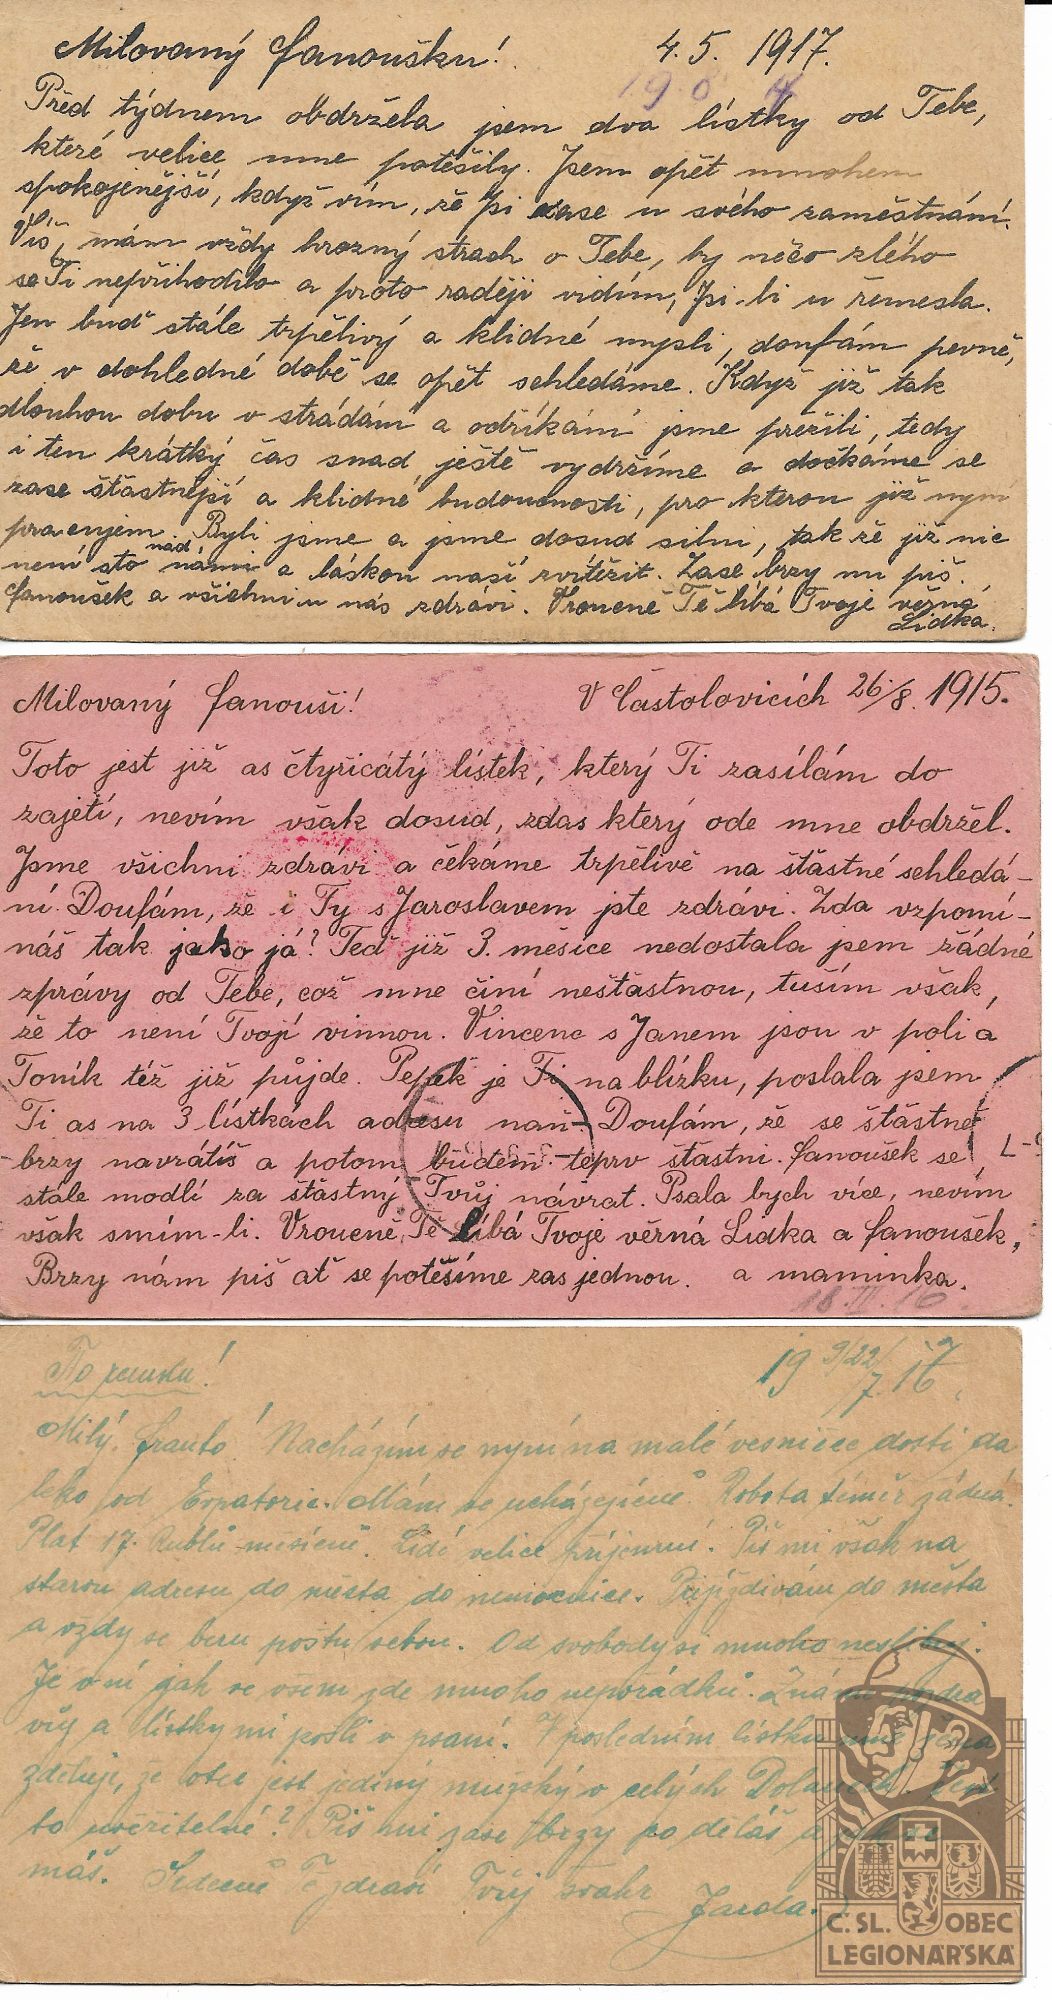 Milovaný Fanoušku! 4.5. 1917.
Před týdnem obdržela jsem dva lístky od Tebe,
které velice mne potěšily. Jsem opět mnohem
spokojenější, když vím, že jsi zase u svého zaměstnání.
Víš, mám vždy hrozný strach o Tebe, by něčo zlého
se Ti nepřihodilo a proto raději vidím, jsi-li u řemesla.
Jen buď stále trpělivý a klidné mysli, doufám pevně,
že v dohledné době se opět sehledáme. Když již tak
dlouhou dobu v strádání a odříkání jsme přežili, tedy
i ten krátký čas snad ještě vydržíme a dočkáme se
zase šťastnější a klidné budoucnosti, pro kterou již nyní
pracujem. Byli jsme a jsme dosud silni, tak že již nic
není sto nad námi a láskou naší zvítězit. Zase brzy mi piš.
Fanoušek a všichni u nás zdrávi. Vroucně Tě líbá Tvoje věrná
Lidka.
Milovaný Fanouši! V Častolovicích 26/8. 1915.
Toto jest již as čtyřicátý lístek, který Ti zasílám do
zajetí, nevím však dosud, zdas který ode mne obdržel.
Jsme všichni zdrávi a čekáme trpělivě na šťastné sehledá-
ní. Doufám, že i Ty s Jaroslavem jste zdrávi. Zda vzpomí-
náš tak jako já? Teď již 3. měsíce nedostala jsem žádné
zprávy od Tebe, což mne činí nešťastnou, tuším však,
že to není Tvojí vinnou. Vincenc s Janem jsou v poli a
Toník též již půjde. Pepek je Ti na blízku, poslala jsem
Ti as na 3 lístkách adresu naň. Doufám, že se šťastně
brzy navrátíš a potom budem teprv šťastni. Fanoušek se
stále modlí za šťastný Tvůj návrat. Psala bych více, nevím
však smím-li. Vroucně Tě líbá Tvoje věrná Lidka a Fanoušek,
Brzy nám piš ať se potěšíme zas jednou. a maminka.
19 9/22/7. 17
Milý Franto! Nacházím se nyní na malé vesničce dosti da
leko od Evpatorie. Mám se ucházejícně. Robota téměř žádná.
Plat 17. Rublů měsíčně. Lidé velice příjemní. Piš mi však na
starou adresu do města do nemocnice. Přijíždívám do města
a vždy se beru poštu sebou. Od svobody si mnoho neslibuj.
Je v ní jak ve všem zde mnoho nepořádků. Známé
a lístky mi pošli v psaní. V posledním lístku mně
zděluje, že otec jest jediný mužský v celých
to uvěřitelné? Piš mi zase brzy co děláš a
máš. Srdečně Tě zdraví Tvůj švakr
Jarda.
Č. SL. OBEC
LEGIONÁŘSKÁ